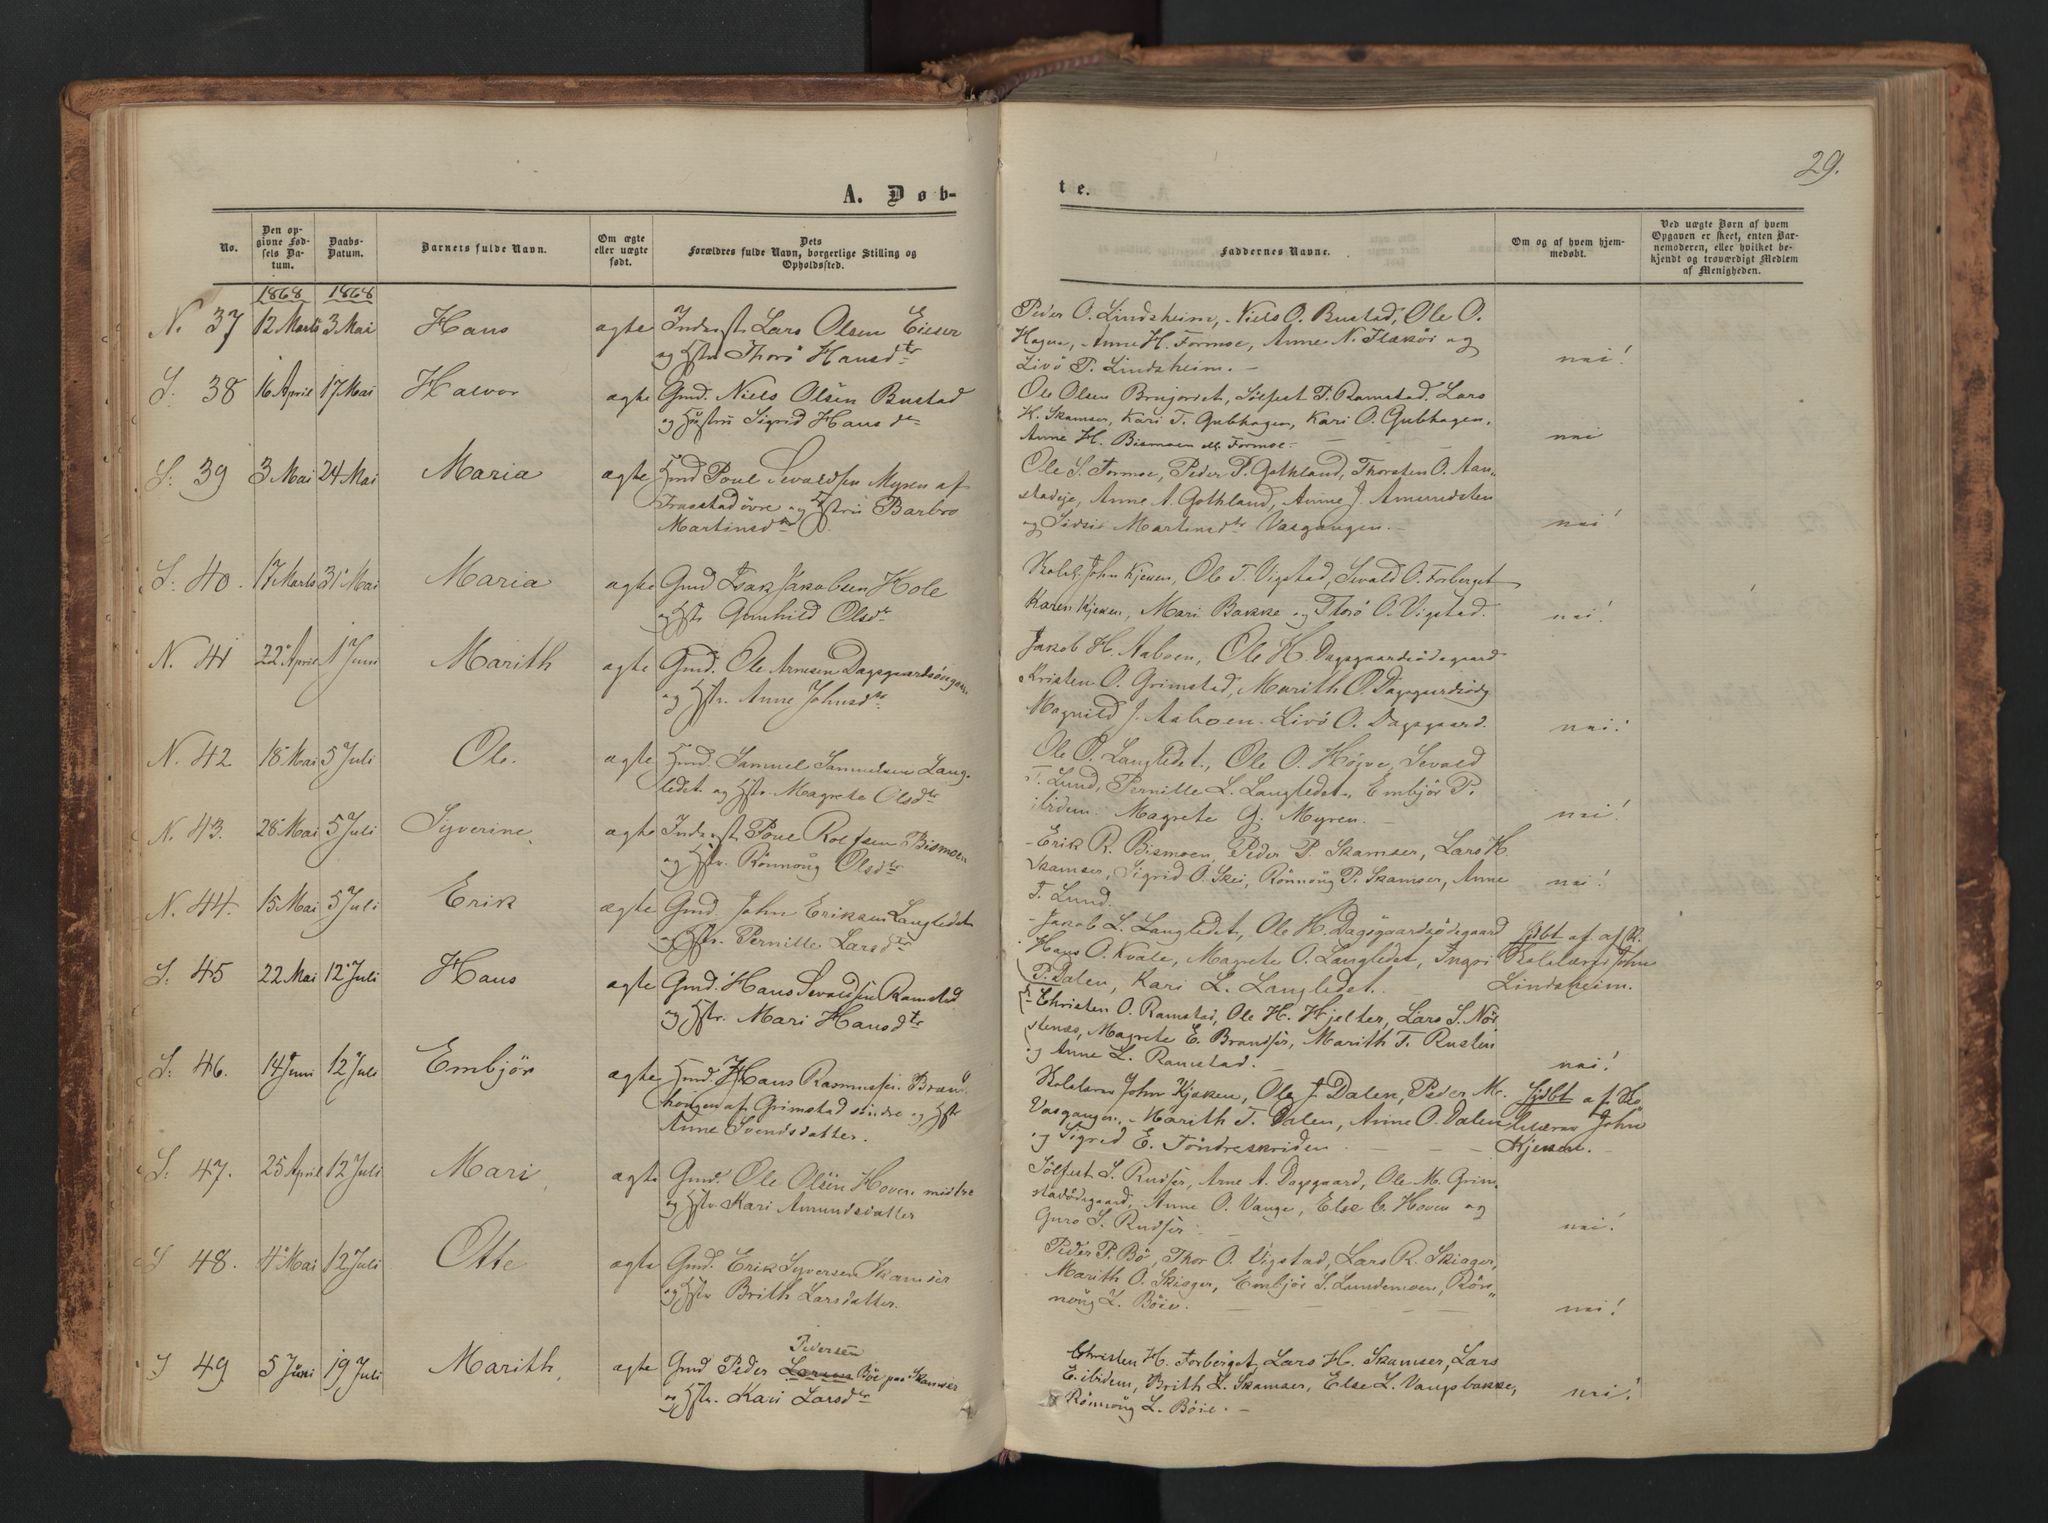 29.
A. Døb-
te.
No.
Den op-
givne Fød-
sels Da-
tum.
Daabs-
Datum.
Barnets fulde Navn.
Om ægte
eller uægte
født.
Dets
Forældres fulde Navn, borgerlige Stilling og
Opholdssted.
Faddernes Navne.
Om og af hvem hjem-
medøbt.
Ved uægte Børn af hvem
Opgaven er skeet, enten Bar-
nemoderen, eller hvilket be-
kjendt og troværdigt Medlem
af Menigheden.
1868 1868
N. 37 12 Marts 3 Mai Hans ægte Inderst Lars Olsen
og Hstr Thorø Hansdtr
Peder O. Lindsheim, Niels O. Bustad, Ole O.
Hagen, Anne H. Formoe, Anne N. Flækøi og
Livö P. Lindsheim. -
nei!
S. 38 16 April 17 Mai Halvor ægte Gmd. Niels Olsen Bustad
og Hustru Sigrid Hansdtr
Ole Olsen Brujordet, Sölfest T. Ramstad, Lars
H. Skamser, Kari T. Gubhagen, Kari O. Gubhagen,
Anne H. Bismoen Formoe. -
nei
S. 39 3 Mai 24 Mai Maria ægte Hmd Poul Sevaldsen Myren af
øvre og Hstru Barbro
Martinsdtr
Ole S. Formoe, Peder P. Gothland, Thorsten O. Aan-
stadeje, Anne A. Gothland, Anne J.
og Sidsel Martinsdtr Vasgangen. -
nei!
S. 40. 17 Marts 31 Mai Maria ægte Gmd Isak Jakobsen Hole
og Hstr Gunhild Olsdtr
Skolel. John Kjeken, Ole T. Vigstad, Sevald O. Forberget
Karen Kjeken, Mari Bakke og Thorø O. Vigstad.
nei!
N. 41 22 April 1 Juni Marith ægte Gmd. Ole Arnesen
og Hstr. Anne Johnsdtr
Jakob H. Aaboen, Ole H. Dagsgaardsödegaard
Kristen O. Grimstad, Marith O. Dagsgaardsödg
Magnild J. Aaboen. Livö O. Dagsgaard.
nei!
N. 42 18 Mai 5 Juli Ole. ægte Hmd. Samuel Samuelsen Lang-
ledet og Hstr. Magrete Olsdtr
Ole O. Langledet, Ole O. Høive, Sevald
T. Lund, Pernille L. Langledet, Embjör P.
ibidem. Magrete G. Myren. -
nei!
N. 43. 28 Mai 5 Juli Syverine. ægte Inderst Poul Rolfsen Bismoen
og Hstr. Rönnoug Olsdtr
Erik R. Bismoen, Peder P. Skamser, Lars H.
Skamser, Sigrid O. Skei, Rönnoug P. Skamser, Anne
T. Lund.
nei!
N. 44. 15 Mai 5 Juli Erik ægte Gmd. John Eriksen Langledet
og Hstr. Pernille Larsdtr
Jakob L. Langledet, Ole H. Dagsgaardsödegaard
Hans O. Kvale, Magrete O. Langledet, Ingri
P. Dalen, Kari L. Langledet.
hjdbt af
Skolelærer John
Lindsheim.
S. 45 22 Mai 12 Juli Hans ægte Gmd. Hans Sevaldsen Ramstad
og Hstr. Mari Hansdtr
Christen O. Ramstad, Ole H. Hjelter, Lars S. Nör-
stenæs, Magrete E. Brandsær, Marith T. Rusten
og Anne L. Ramstad.
nei!
S. 46. 14 Juni 12 Juli Embjör ægte Hmd. Hans Rasmusen Bræn-
hougen af Grimstad söndre og Hstr
Anne Svendsdatter.
Skolelærer John Kjeken, Ole J. Dalen, Peder M.
Vasgangen, Marith T. Dalen, Anne O. Dalen
og Sigrid E. Töndreskriden. - - -
hjdbt af Sko-
lelærer John
Kjeken. -
S. 47. 25 April 12 Juli Mari. ægte Gmd. Ole Olsen Hoven midtre
og Hstr. Kari Amundsdatter
Sölfest S. Rudser, Arne A. Dagsgaard, Ole M. Grim-
stadödegaard, Anne O. Vange, Else C. Hoven og
Guro S. Rudser. -
nei!
S 48. 4 Mai 12 Juli Otte ægte Gmd. Erik Syversen Skamser
og Hstr Brith Larsdatter.
Peder P. Bö, Thor O. Vigstad, Lars R. Skjager,
Marith O. Skjager, Embjör S. Lundemoen, Rön-
noug L. Böie. - - - -
nei!
S 49 5 Juni 19 Juli Marith. ægte Gmd Peder Pedersen Larsen Böe paa Skamser
og Hstr. Kari Larsdtr
Christen H. Forberget, Lars H. Skamser, Lars
E. ibidem, Brith L. Skamser, Else L. Vangsbakke,
Rönnoug L. Böie. -
nei!